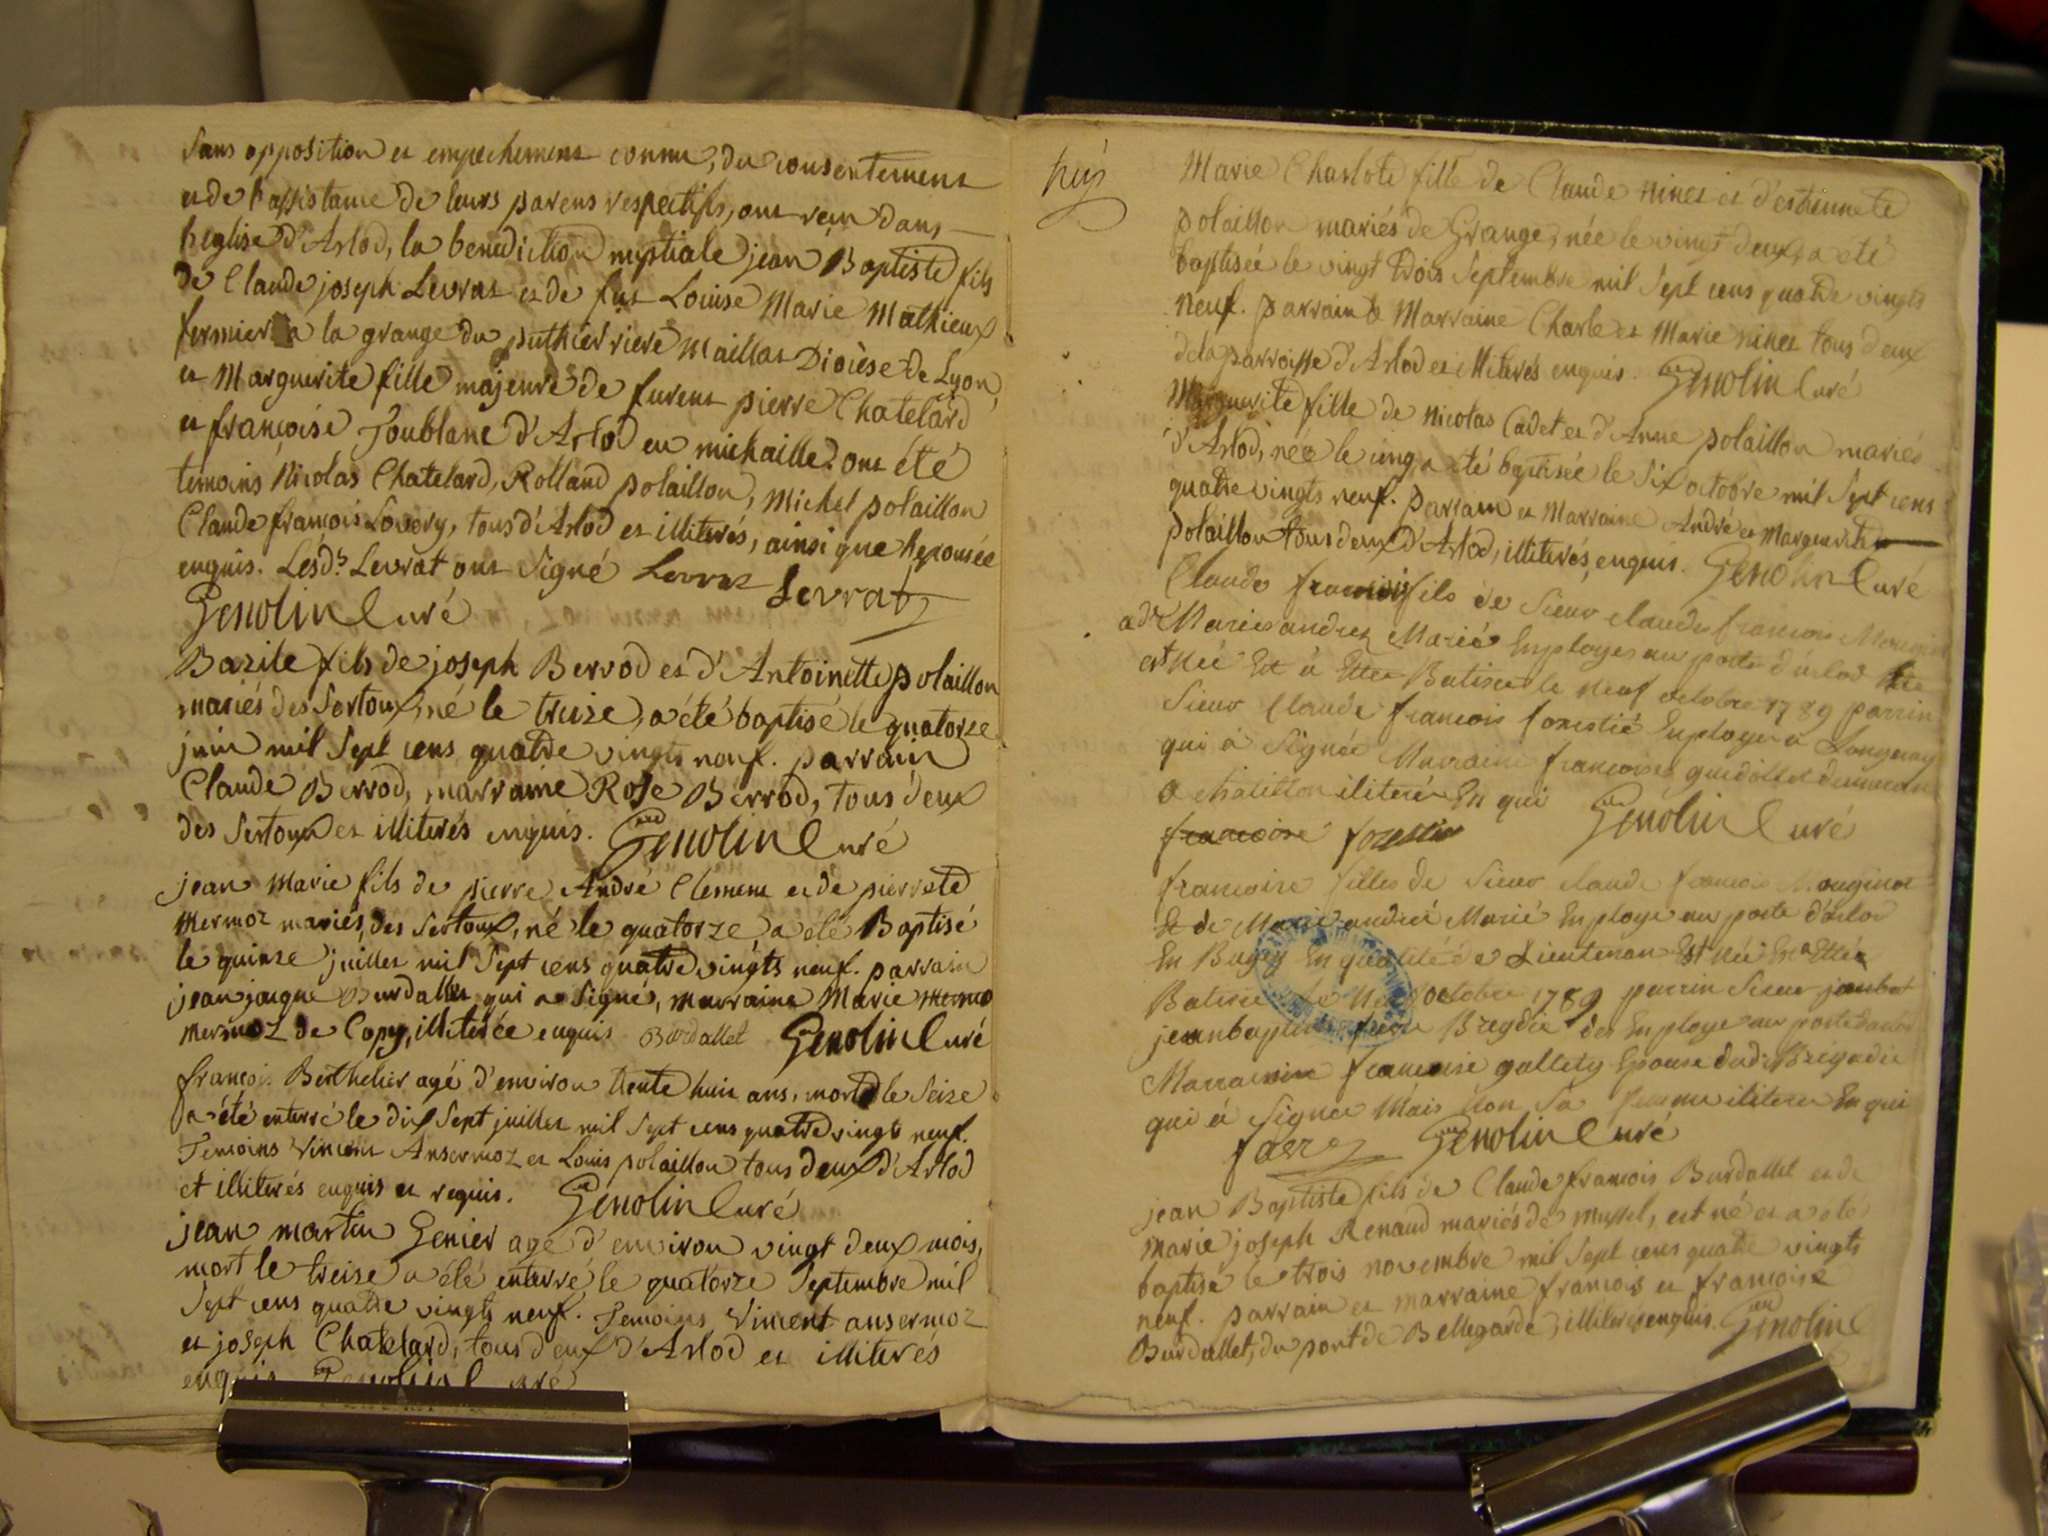 Sans opposition et empechement connu, du consentement
et de l'assistance de leurs parens respectifs, ont reçu dans
l'eglise d'Arlod, la benediction nuptiale jean Baptiste fils
de Claude joseph Levrat et de fut Louise Marie Mathieux
fermier a la grange du puthier riere Maillat Diocèse de Lyon,
et Marguerite fille majeure de furent pierre Chatelard
et françoise Joublanc d'Arlod en michaille. ont été
temoins Nicolas Chatelard, Rolland polaillon, Michel polaillon
Claude françois Lovery, tous d'Arlod et illiterés, ainsi que l'epousée
enquis. Lesdts Levrat ont Signé Levrat Levrat
Genolin Curé
Bazile fils de joseph Berrod et d'Antoinette polaillon
mariés des Sertoux, né le treize, a été baptisé le quatorze
juin mil Sept cens quatre vingts neuf. parrain
Claude Berrod, marraine Rose Berrod, tous deux
des Sertoux et illiterés enquis. Genolin Curé
jean Marie fils de pierre André Clement et de pierrete
Mermoz mariés, des Sertoux, né le quatorze a été Baptisé
le quinze juillet mil Sept cens quatre vingts neuf. parrain
jean jaque Burdallet qui a Signé, marraine Marie
Mermoz de Copy, illiterée enquis Burdallet Genolin Curé
françois Berthelier agé d'environ trente huit ans, mort le Seize
a été enterré le dix Sept juillet mil Sept cens quatre vingts neuf.
Temoins Vincent Ansermoz et Louis polaillon tous deux d'Arlod
et illiterés enquis et requis. Genolin Curé
jean martin Genier agé d'environ vingt deux mois,
mort le treize a été enterré le quatorze Septembre mil
Sept cens quatre vingts neuf. Temoins Vincent ansermoz
et joseph Chatelard, tous deux d'Arlod et illiterés
enquis Genolin Curé
Marie Charlote fille de Claude ninet et d'estiennete
polaillon mariés de Grange, née le vingt deux, a été
baptisée le vingt trois Septembre mil Sept cens quatre vingts
neuf. parrain & Marraine Charle et Marie ninet tous deux
de la parroisse d'Arlod et illiterés enquis. Genolin Curé
Marguerite fille de Nicolas Cadet et d'Anne polaillon mariés
d'Arlod, née le cinq a été baptisée le Six octobre mil Sept cens
quatre vingts neuf. parrain et Marraine André et Marguerite
polaillon tous deux d'Arlod, illiterés, enquis. Genolin Curé
Claude francois fils de Sieur claude francois
Marie andrez Marié Employes au poste d'arlod
est Née Et a Ettee Batisee le neuf octobre 1789 parrin
Sieur Claude francois forestié Employer a Longeray
qui a Signée Marraine francoise
a chatillon iliteree En qui Genolin Curé
francoise
francoise filles de Sieur claude francois Mouginot
Et de Marie andreé Marié Employe au poste d'arlod
En Bugey En qualité de Lieutenan Est Née En a Ettée
Batisee Le Neuf octobre 1789 parrin Sieur
jeanbaptiste Brigdié des Employe au poste
Marraine francoise gallety Epouse dudt Brigadié
qui a Signee Mais Non Sa femme iliteree En qui
Genolin Curé
jean Baptiste fils de Claude françois Burdallet et de
Marie joseph Renaud mariés de mussel, est né et a été
baptisé le trois novembre mil Sept cens quatre vingts
neuf. parrain et marraine françois et françoise
Burdallet, du pont de Bellegarde, illiterés enquis. Genolin